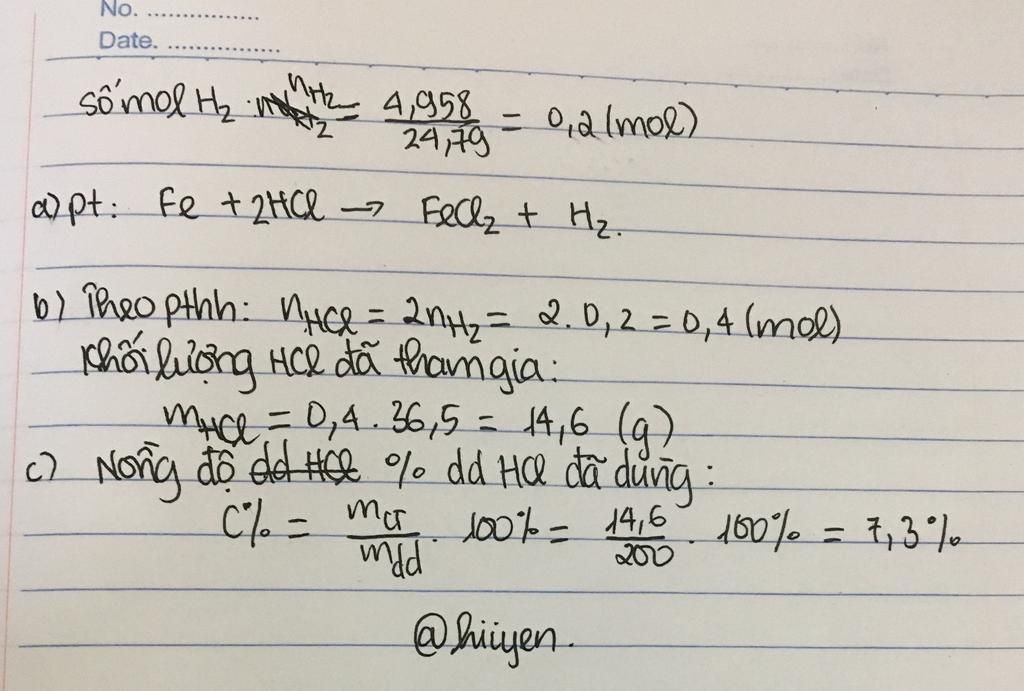 No. ................
Date. .................
số mol H₂ n_H₂ = 4,958/24,79 = 0,2 (mol)
a) pt: Fe + 2HCl → FeCl₂ + H₂.
b) Theo pthh: n_HCl = 2n_H₂ = 2. 0,2 = 0,4 (mol)
Khối lượng HCl đã tham gia:
m_HCl = 0,4 . 36,5 = 14,6 (g)
c) Nồng độ ~~dd HCl~~ % dd HCl đã dùng:
C% = m_ct/m_dd . 100% = 14,6/200 . 100% = 7,3%
@hiiyen.